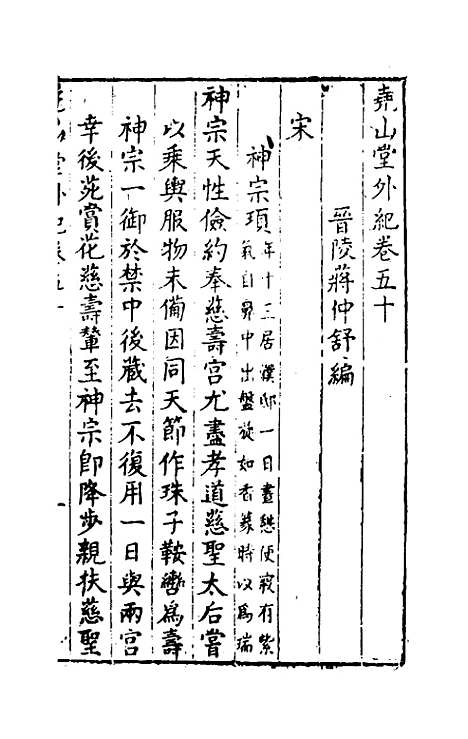 堯山堂外紀卷五十
晉陵蔣仲舒編
宋
神宗頊年十三居濮邸一日晝憩便寢有紫
氣自鼻中出盤旋如香篆時以爲瑞
神宗天性儉約奉慈壽宫尤盡孝道慈聖太后嘗
以乘輿服物未備因同天節作珠子鞍轡爲壽
神宗一御於禁中後藏去不復用一日與兩宫
幸後苑賞花慈壽輦至神宗卽降步親扶慈聖
堂外紀卷五十
一